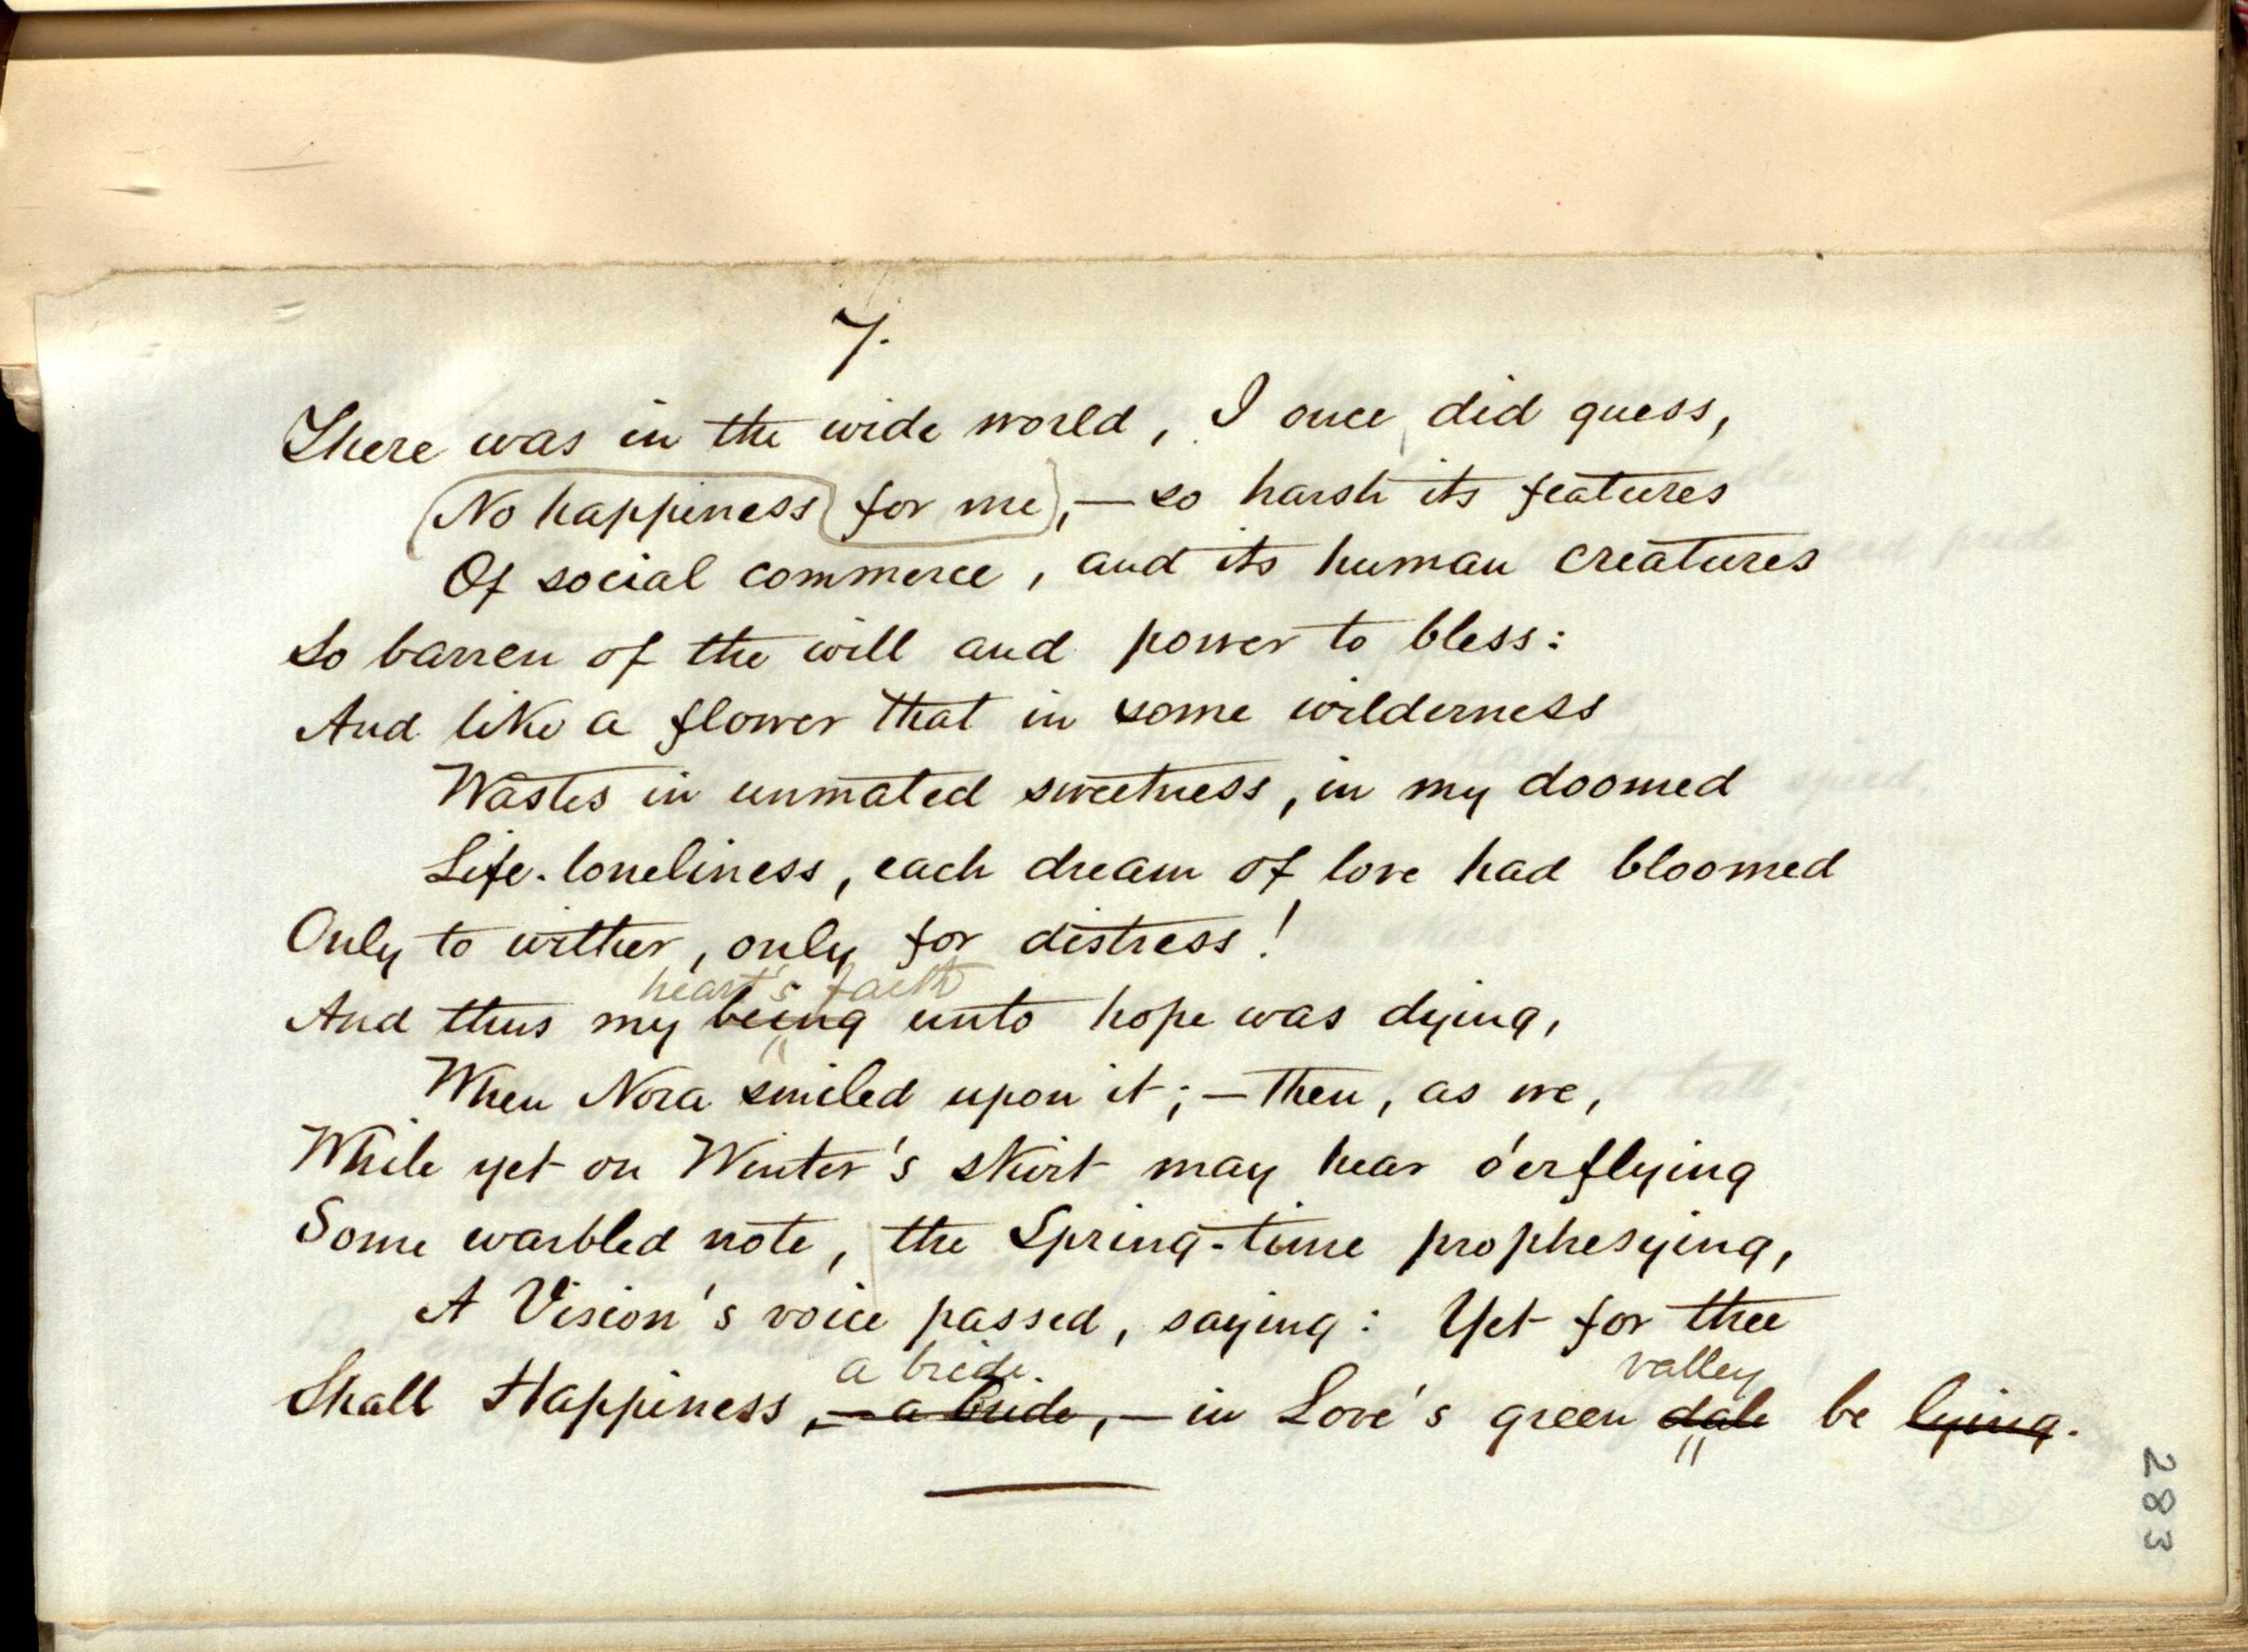 7.
There was in the wide world, I once did guess,
No happiness for me, — so harsh its features
Of social commerce, and its human creatures
So barren of the will and power to bless:
And like a flower that in some wilderness
Wastes in unmated sweetness, in my doomed
Life-loneliness, each dream of love had bloomed
Only to wither, only for distress!
heart's faith
And thus my being unto hope was dying,
When Nora smiled upon it; — then, as we,
While yet on Winter's skirt may hear o'erflying
Some warbled note, the Spring-time prophesying,
A Vision's voice passed, saying: Yet for thee
a bride. valley
Shall Happiness, — a bride, — in Love's green dale be lying.
283